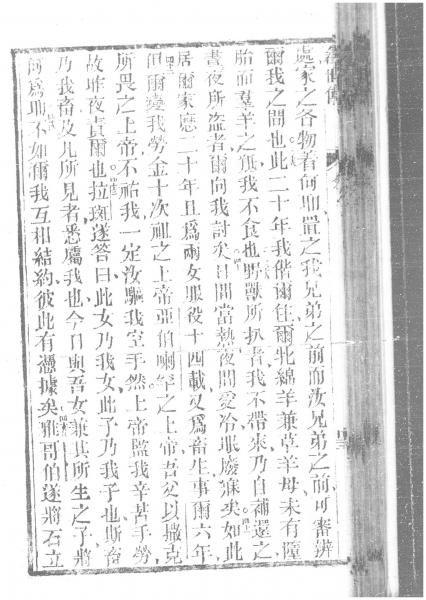 處家之各物者何耶置之我兄弟之前而汝兄弟之前可審辨
爾我之間也此二十年我偕爾住爾牝綿羊兼草羊母未有墮
胎而羣羊之羝我不食也野獸所扒者我不帶來乃自補還之
晝夜所盜者爾向我討矣日間當熱夜間受冷眠廢寐矣如此
居爾家應二十年且爲兩女服役十四載又爲畜生事爾六年
但爾變我勞金十次祖之上帝亞伯喇罕之上帝吾父以撒克
所畏之上帝不祐我一定汝驅我空手然上帝監我辛苦手勞
故昨夜責爾也拉班遂答曰此女乃我女此子乃我子也斯畜
乃我畜及凡所見者悉屬我也今日與吾女兼其所生之子將
何爲耶不如爾我互相結約彼此有憑據矣雅哥伯遂將石立